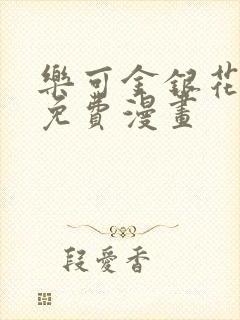 樂可金銀花
免費漫畫
段愛香